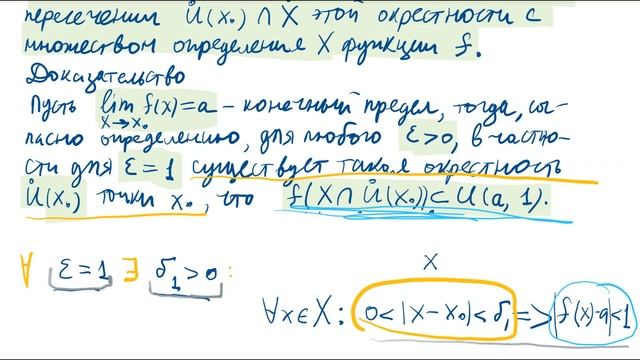 пересечении Ů(x₀) ∩ X этой окрестности с
множеством определения X функции f.
Доказательство
Пусть lim f(x)=a – конечный предел, тогда, со-
x→x₀
гласно определению, для любого ε>0, в частно-
сти для ε=1 существует такая окрестность
Ů(x₀) точки x₀, что f(X∩Ů(x₀))⊂U(a,1).
∀ ε=1 ∃ δ₁>0:
x
∀x∈X: 0<|x-x₀|<δ₁ => |f(x)-a|<1